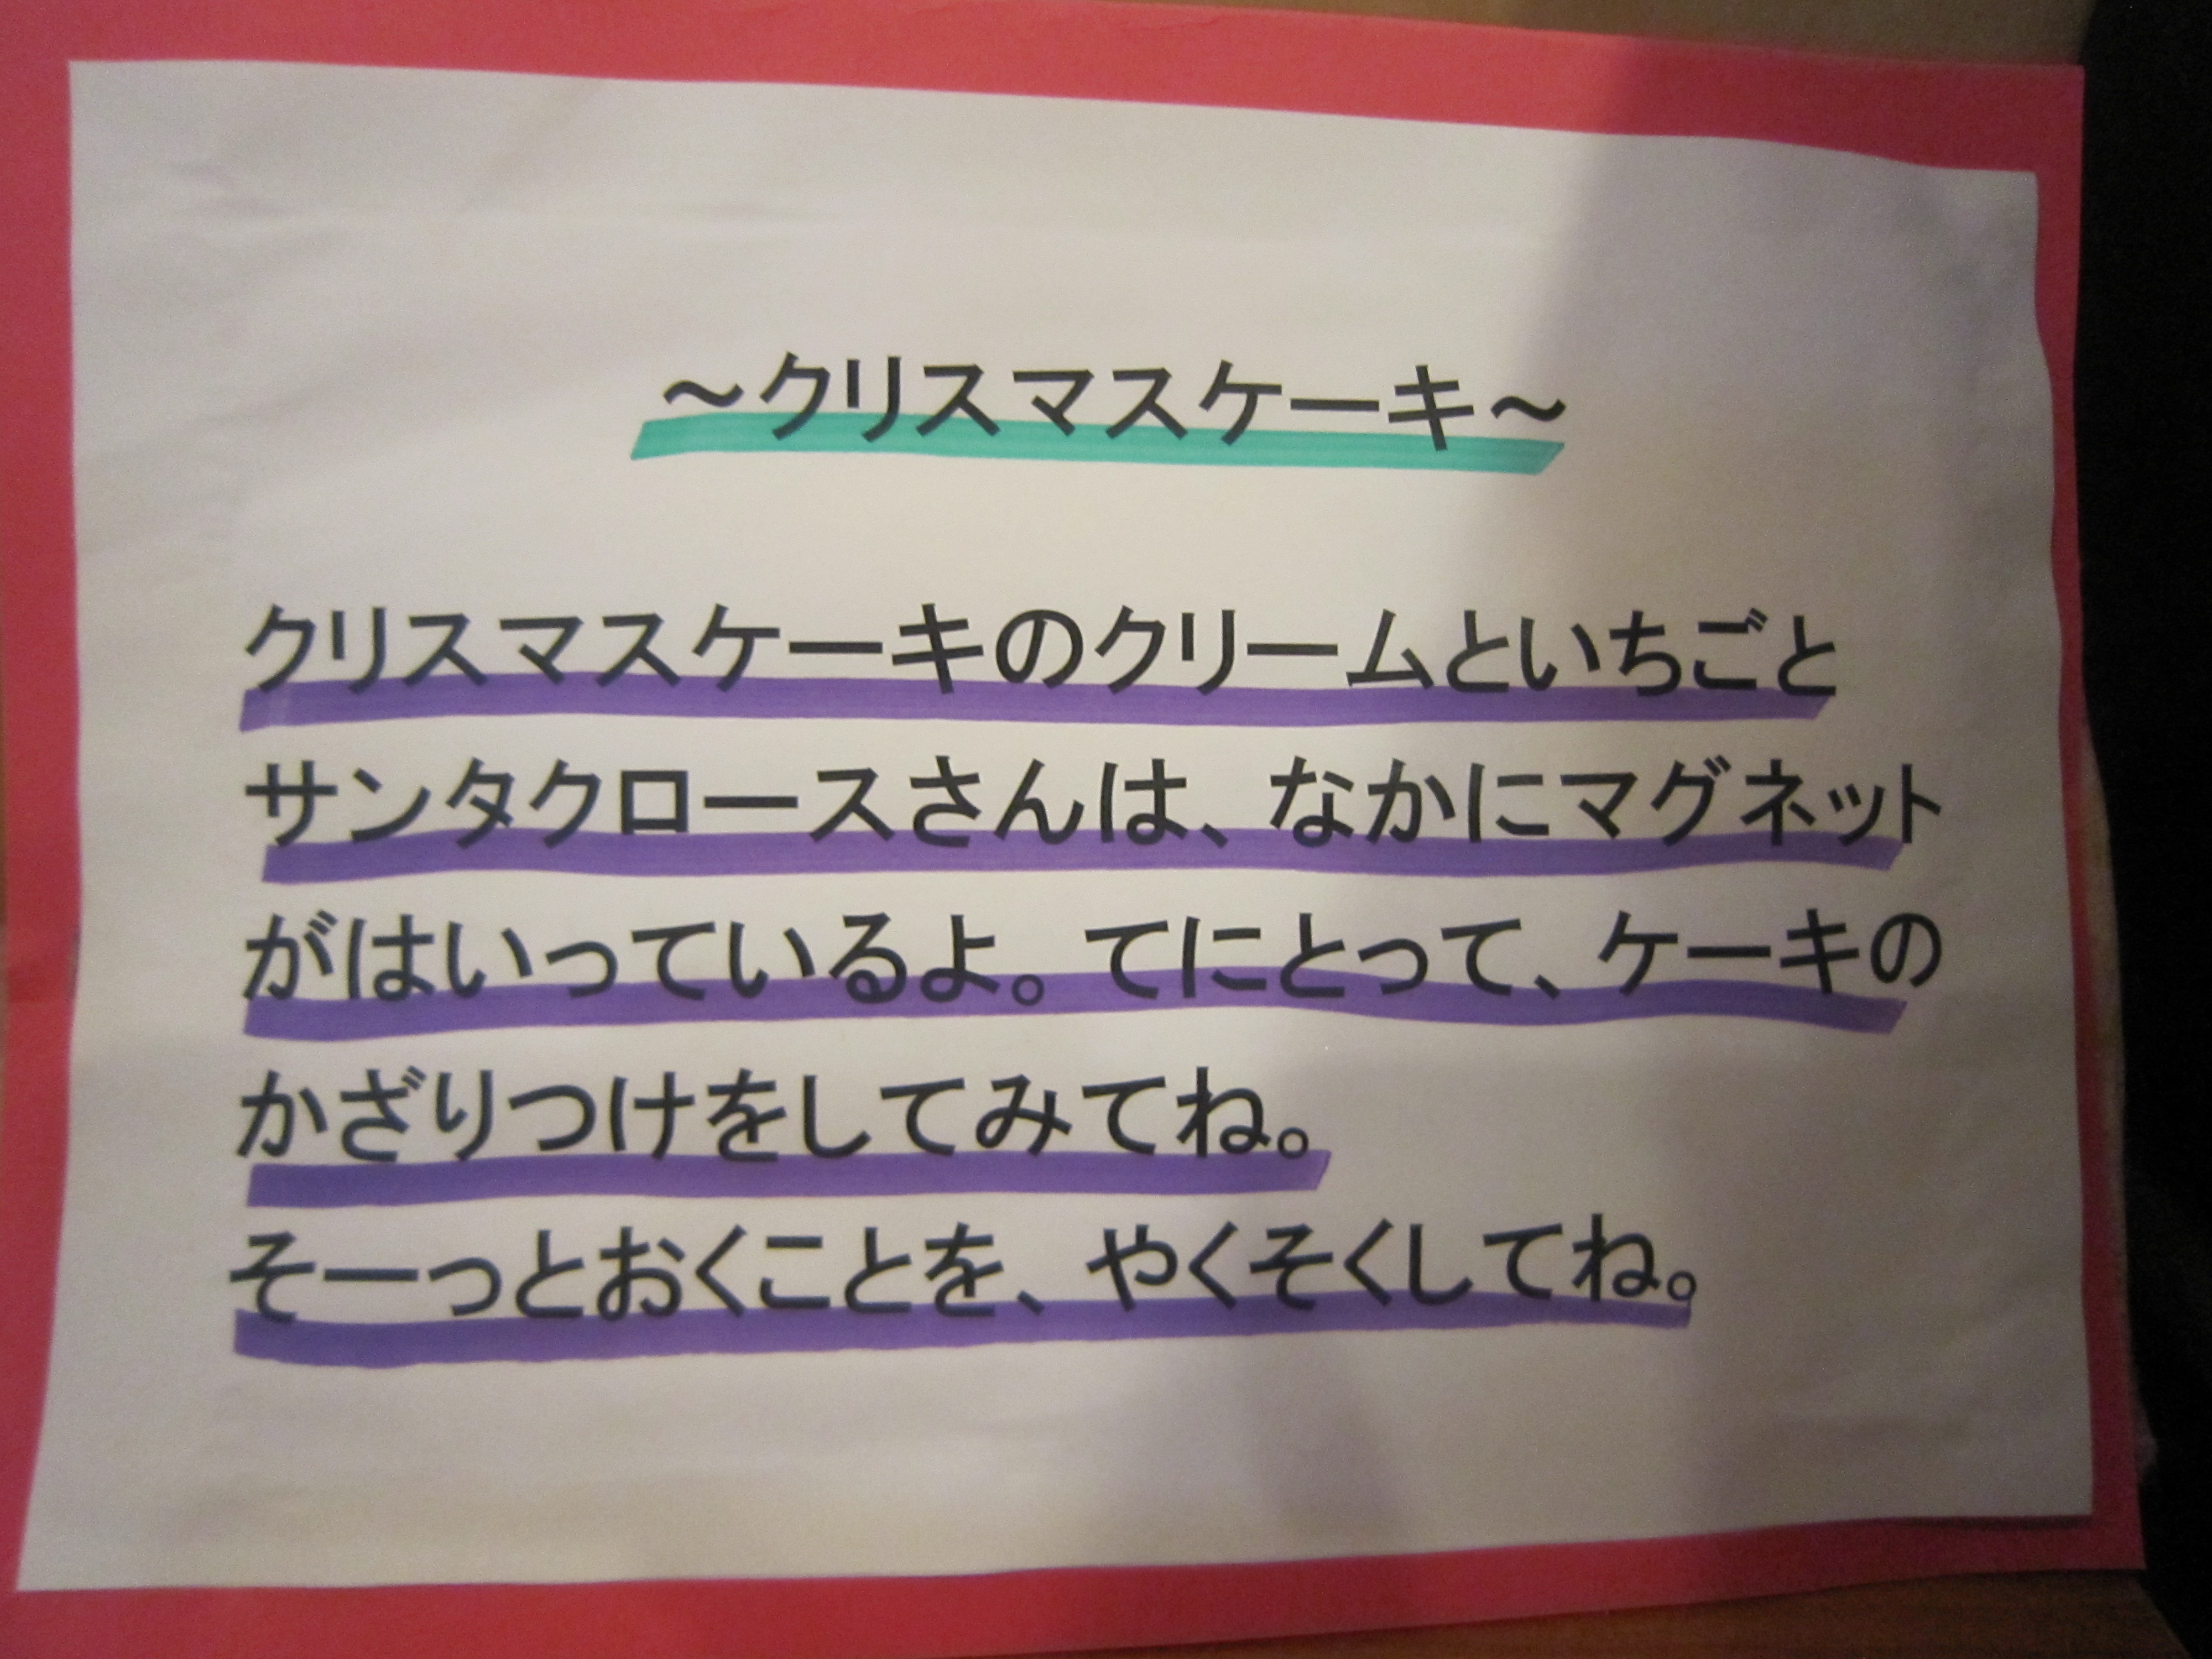 ～クリスマスケーキ～
クリスマスケーキのクリームといちごと
サンタクロースさんは、なかにマグネット
がはいっているよ。てにとって、ケーキの
かざりつけをしてみてね。
そーっとおくことを、やくそくしてね。